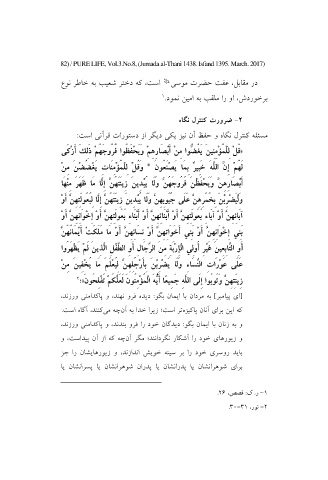 82) / PURE LIFE, Vol.3.No.8, (Jumada al-Thani 1438. Isfand 1395. March. 2017)
در مقابل، عفت حضرت موسی است، که دختر شعیب به خاطر نوع
برخوردش، او را ملقب به امین نمود.۱
۲- ضرورت کنترل نگاه
مسئله کنترل نگاه و حفظ آن نیز یکی دیگر از دستورات قرآنی است:
«قُل لِّلْمُؤْمِنِينَ يَغُضُّوا مِنْ أَبْصَارِهِمْ وَيَحْفَظُوا فُرُوجَهُمْ ذَلِكَ أَزْكَى
لَهُمْ إِنَّ اللَّهَ خَبِيرٌ بِمَا يَصْنَعُونَ * وَقُل لِّلْمُؤْمِنَاتِ يَغْضُضْنَ مِنْ
أَبْصَارِهِنَّ وَيَحْفَظْنَ فُرُوجَهُنَّ وَلَا يُبْدِينَ زِينَتَهُنَّ إِلَّا مَا ظَهَرَ مِنْهَا
وَلْيَضْرِبْنَ بِخُمُرِهِنَّ عَلَى جُيُوبِهِنَّ وَلَا يُبْدِينَ زِينَتَهُنَّ إِلَّا لِبُعُولَتِهِنَّ أَوْ
آبَائِهِنَّ أَوْ آبَاء بُعُولَتِهِنَّ أَوْ أَبْنَائِهِنَّ أَوْ أَبْنَاء بُعُولَتِهِنَّ أَوْ إِخْوَانِهِنَّ أَوْ
بَنِي إِخْوَانِهِنَّ أَوْ بَنِي أَخَوَاتِهِنَّ أَوْ نِسَائِهِنَّ أَوْ مَا مَلَكَتْ أَيْمَانُهُنَّ
أَوِ التَّابِعِينَ غَيْرِ أُولِي الْإِرْبَةِ مِنَ الرِّجَالِ أَوِ الطِّفْلِ الَّذِينَ لَمْ يَظْهَرُوا
عَلَى عَوْرَاتِ النِّسَاء وَلَا يَضْرِبْنَ بِأَرْجُلِهِنَّ لِيُعْلَمَ مَا يُخْفِينَ مِنْ
زِينَتِهِنَّ وَتُوبُوا إِلَى اللَّهِ جَمِيعًا أَيُّهَ الْمُؤْمِنُونَ لَعَلَّكُمْ تُفْلِحُونَ»؛۲
[ای پیامبر] به مردان با ایمان بگو: دیده فرو نهند، و پاکدامنی ورزند،
که این برای آنان پاکیزه‌تر است؛ زیرا خدا به آن‌چه می‌کنند، آگاه است.
و به زنان با ایمان بگو: دیدگان خود را فرو بندند، و پاکدامنی ورزند،
و زیورهای خود را آشکار نگردانند؛ مگر آن‌چه که از آن پیداست. و
باید روسری خود را بر سینه خویش اندازند، و زیورهایشان را جز
برای شوهرانشان یا پدرانشان یا پدران شوهرانشان یا پسرانشان یا
۱- ر. ک: قصص، ۲۶.
۲- نور، ۳۱-۳۰.